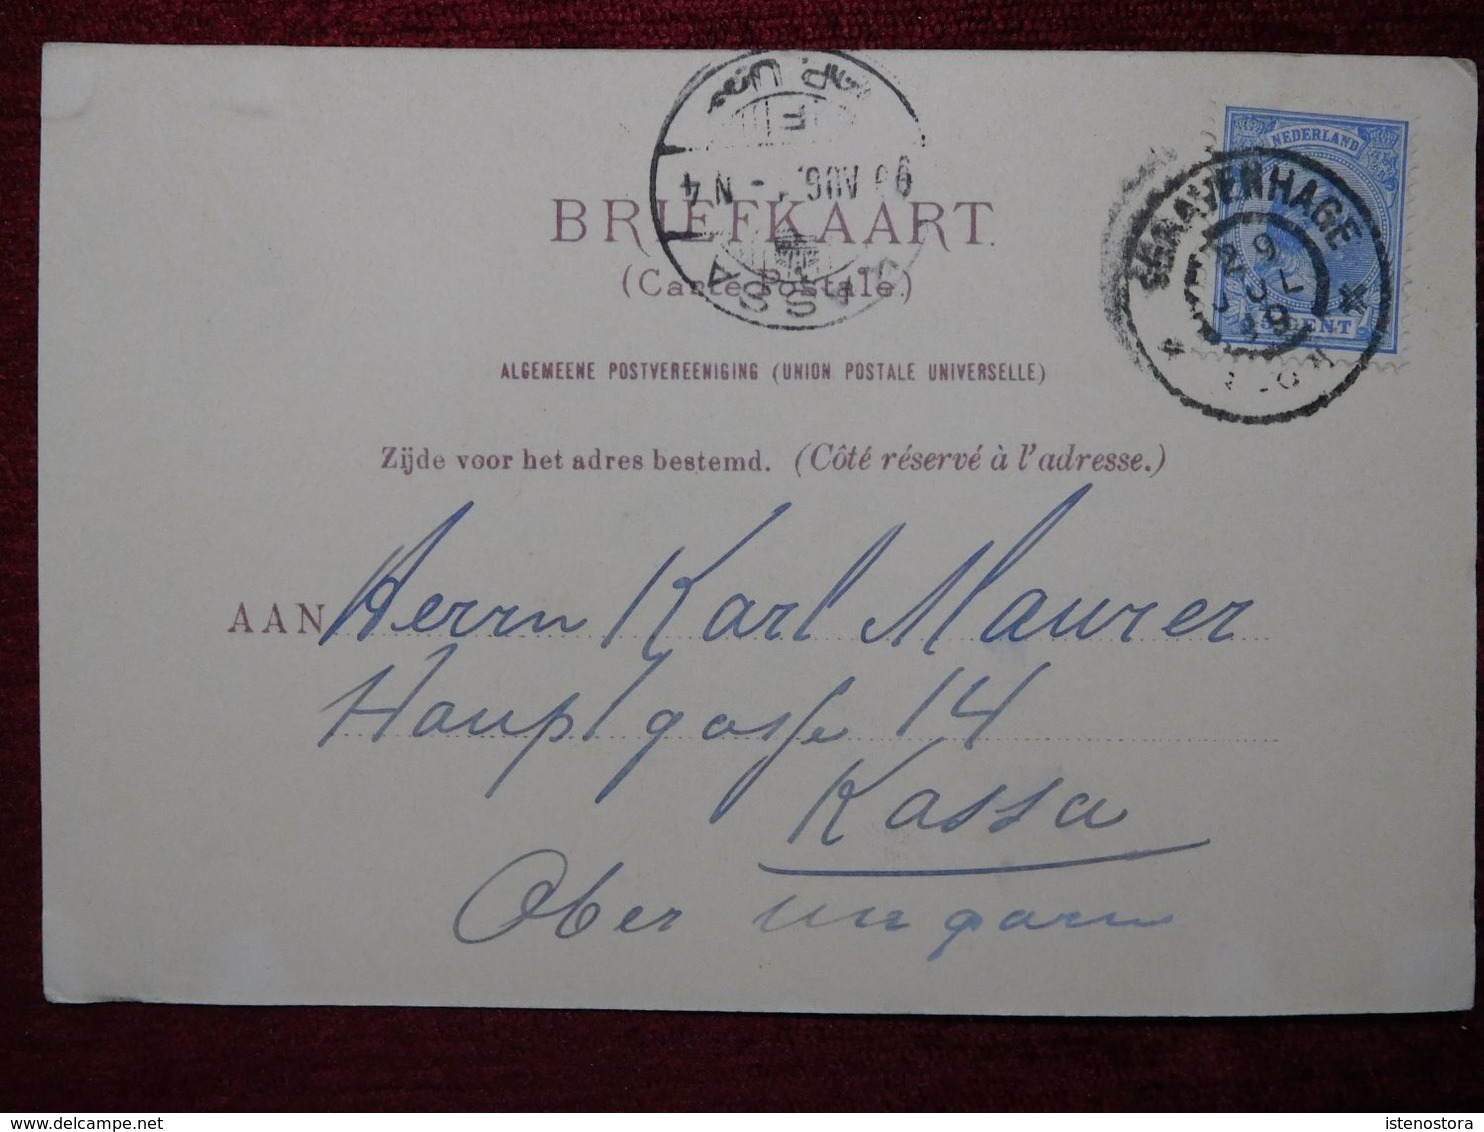 NEDERLAND
'S GRAVENHAGE
CENT
BRIEFKAART
(Carte Postale.)
ALGEMEENE POSTVEREENIGING (UNION POSTALE UNIVERSELLE)
Zijde voor het adres bestemd. (Côté réservé à l'adresse.)
AAN Herrn Karl Maurer
Hauptgasse 14
Kassa
Ober ungarn
KASSA
AUG.
N 4
istenostora